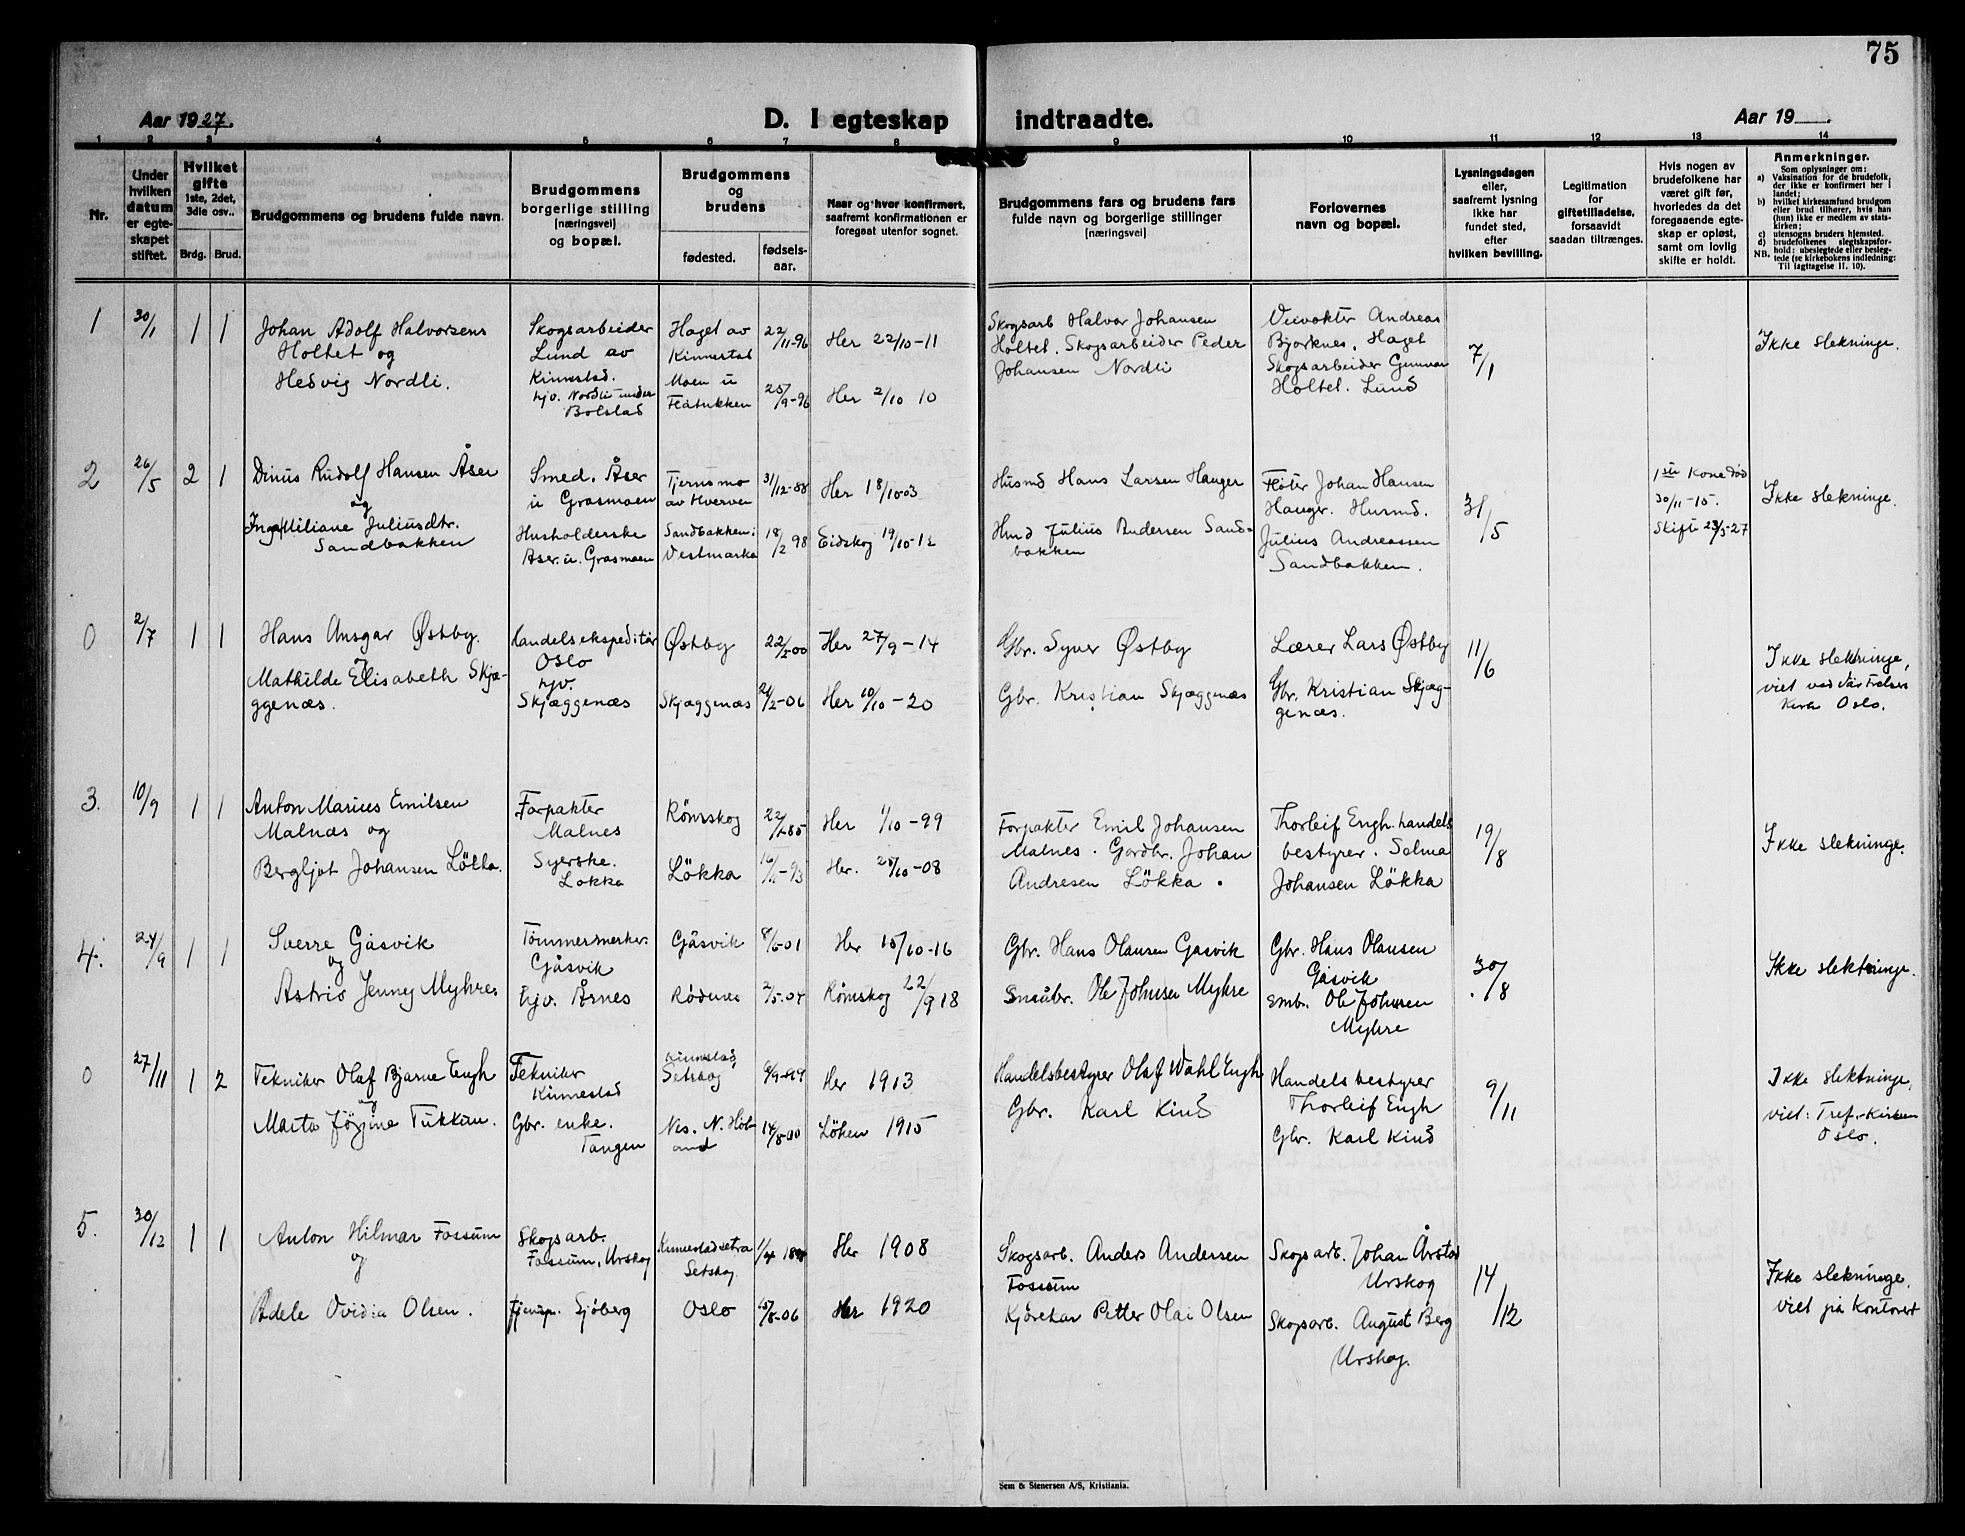 75
Aar 1927.
D. I egteskap indtraadte.
Aar 19 .
1 2 3 4 5 6 7 8 9 10 11 12 13 14
Nr.
Under
hvilken
datum
er egte-
skapet
stiftet.
Hvilket
gifte
1ste, 2det,
3die osv..
Brdg. Brud.
Brudgommens og brudens fulde navn.
Brudgommens
borgerlige stilling
(næringsvei)
og bopæl.
Brudgommens
og
brudens
fødested.
fødsels-
aar.
Naar og hvor konfirmert,
saafremt konfirmationen er
foregaat utenfor sognet.
Brudgommens fars og brudens fars
fulde navn og borgerlige stillinger
(næringsvei)
Forlovernes
navn og bopæl.
Lysningsdagen
eller,
saafremt lysning
ikke har
fundet sted,
efter
hvilken bevilling.
Legitimation
for
giftetilladelse,
forsaavidt
saadan tiltrænges.
Hvis nogen av
brudefolkene har
været gift før,
hvorledes da det
foregaaende egte-
skap er opløst,
samt om lovlig
skifte er holdt.
Anmerkninger.
Som oplysninger om:
a) Vaksination for de brudefolk,
der ikke er konfirmert her i
landet;
b) hvilket kirkesamfund brudgom
eller brud tilhører, hvis han
(hun) ikke er medlem av stats-
kirken;
c) utensogns bruders hjemsted.
d) brudefolkenes slegtskapsfor-
hold: ubeslegtede eller besleg-
NB. tede (se kirkebokens indledning:
Til Iagttagelse II. 10).
1
30/1
1 1
Johan Adolf Halvorsens
Holtet og
Hedvig Nordli.
Skogsarbeider
Lund av
Kinnestad.
hjv. Nordli under
Bolstad
Haget av
Kinnestad
Moen u
Flatukken
22/11-96
25/9-96
Her 22/10-11
Her 2/10 10
Skogsarb Halvor Johansen
Holtet. Skogsarbeider Peder
Johansen Nordli
Veivokter Andreas
Bjørknes, Haget
Skogsarbeider Gunnar
Holtet. Lund
7/1
Ikke slektninge.
2
26/5
2 1
Dinus Rudolf Hansen Åser
og
Inga Miliane Juliusdtr.
Sandbakken
Smed. Åser
u Grasmoen
Husholderske
Åser u. Grasmoen
Tjernsmo
av Hverven
Sandbakken i
Vestmarka
31/12-88
18/2 98
Her 18/10-03
Eidskog 19/10-12
Husmd Hans Larsen Hauger
Hmd Julius Andersen Sand-
bakken
Fløter Johan Hansen
Hauger. Husmd.
Julius Andreassen
Sandbakken.
31/5
1ste Kone død
30/11-15.
Skifte 23/5-27
Ikke slektninge.
0
2/7
1 1
Hans Ansgar Østby.
og
Mathilde Elisabeth Skjæ-
ggenæs.
Handelsekspeditør
Oslo
hjv.
Skjæggenæs
Østby
Skjæggenæs
22/5-00
/2-06
Her 27/9-14
Her 10/10-20
Gbr. Syver Østby
Gbr. Kristian Skjæggenæs
Lærer Lars Østby
Gbr. Kristian Skjæg-
genæs.
11/6
Ikke slektninge,
viet ved Vår Frelsers
Kirke Oslo.
3.
10/9
1 1
Anton Marius Emilsen
Malnæs og
Bergljot Johansen Løkka.
Forpakter
Malnes
Syerske.
Løkka
Rømskog
Løkka
22/ -85
16/11-93
Her 1/10-99
Her. 25/10-08
Forpakter Emil Johansen
Malnes. Gardbr. Johan
Andresen Løkka.
Thorleif Engh. handels
bestyrer. Selma
Johansen Løkka
19/8
Ikke slektninge.
4.
24/9
1 1
Sverre Gåsvik
og
Astrid Jenney Myhre
Tømmermerker.
Gåsvik
hjv. Årnes
Gåsvik
Rødenes
8/6-01
2/5-04
Her 15/10-16
Rømskog 22/9 18
Gbr. Hans Olausen Gasvik
Småbr. Ole Johnsen Myhre
Gbr. Hans Olausen
Gåsvik
Smb. Ole Johnsen
Myhre
30/8
Ikke slektninge.
0
27/11
1 2
Tekniker Olaf Bjarne Engh
og
Marta Jørgine Tukkun.
Tekniker
Kinnestad
Gbr. enke.
Tangen
Kinnestad
Setskog
Nes. N. Høl-
and
9/9-
14/8-00
Her 1913
Løken 1915
Handelsbestyrer Olaf Wahl Engh
Gbr. Karl Kind
Handelsbestyrer
Thorleif Engh
Gbr. Karl Kind
9/11
Ikke slektninge,
viet: Tref.-Kirken
Oslo.
5.
30/12
1 1
Anton Hilmar Fossum
og
Adele Ovidia Olsen.
Skogsarb.
Fossum, Urskog
tjenesp. Sjøberg
Kinnestadsetra
Setskog
Oslo
1/4 189
15/8-06
Her 1908
Her 1920
Skogsarb. Anders Andersen
Fossum
Kjørekar Petter Olai Olsen
Skogsarb. Johan Årstad
Urskog
Skogsarb. August Berg
Urskog.
14/12
Ikke slektninge,
viet på kontoret
Sem & Stenersen A/S, Kristiania.